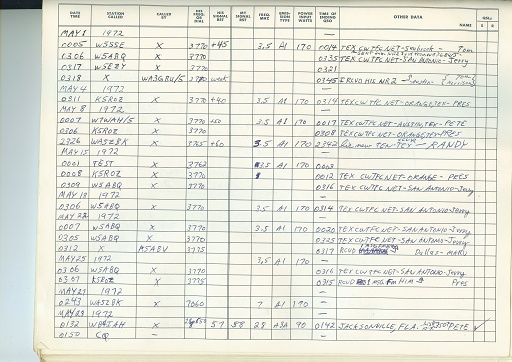 DATE TIME STATION CALLED CALLED BY HIS FREQ. OR DIAL HIS SIGNAL RST MY SIGNAL RST FREQ. MHZ EMISSION TYPE POWER INPUT WATTS TIME OF ENDING QSO OTHER DATA NAME QSLs S R
MAY 1 1972 —
0005 W5SSE X 3770 +45 3.5 A1 170 0014 TEX CW TFC NET- Tom
0306 W5ABQ X 3770 0335 TEX CW TFC NET-SAN ANTONIO-Jerry
0317 W5EZY X 3770 0321
0318 X WA3GRU/5 3780 weak 0345 RCVD HIS NR 2
MAY 4 1972 —
0311 K5ROZ X 3770 +40 3.5 A1 170 0314 TEX CW TFC NET-ORANGE, TEX- PRES
MAY 8 1972 —
0007 X 3770 +50 3.5 A1 170 0017 TEX CW TFC NET-AUSTIN, TEX- PETE
0306 K5ROZ X 3770 0308 TEX CW TFC NET-ORANGE, TEX-PRES
2326 WA5ZBK X 3765 +60 3.5 A1 170 2342 his new TEN-TEC - RANDY
MAY 15 1972 —
0001 TEST X 3762 3.5 A1 170 0003
0008 K5ROZ X 3770 0012 TEX CW TFC NET-ORANGE - PRES
0309 W5ABQ X 3770 0316 TEX CW TFC NET-SAN ANTONIO-Jerry
MAY 18 1972 —
0306 W5ABQ X 3770 3.5 A1 170 0314 TEX CW TFC NET-SAN ANTONIO-Jerry
MAY 22 1972 —
0007 W5ABQ X 3770 3.5 A1 170 0020 TEX CW TFC NET-SAN ANTONIO-Jerry
0305 W5ABQ X 3770 0325 TEX CW TFC NET-SAN ANTONIO-Jerry
0312 X M5ABV 3775 0317 RCVD Dallas- MARU
MAY 25 1972 3.5 A1 170 —
0306 W5ABQ X 3770 0316 TEX CW TFC NET-SAN ANTONIO-Jerry
0307 K5ROZ X 3775 0315 RCVD MSG. Fm HIM Pres
MAY 27 1972 —
0243 WA5ZBK X 7060 7 A1 190 —
MAY 29 1972 —
0132 X 57 58 28 A3A 90 0142 JACKSONVILLE, FLA. PETE
0150 CQ — —